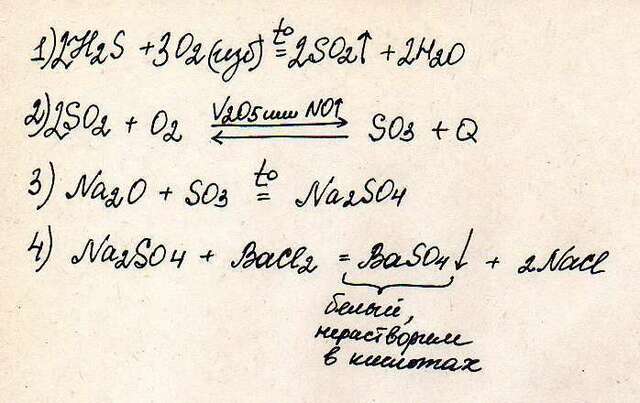 1) 2H2S + 3O2 (изб) t°= 2SO2↑ + 2H2O
2) 2SO2 + O2 V2O5 или NO↑ ⇄ SO3 + Q
3) Na2O + SO3 t°= Na2SO4
4) Na2SO4 + BaCl2 = BaSO4↓ + 2NaCl
белый,
нерастворим
в кислотах